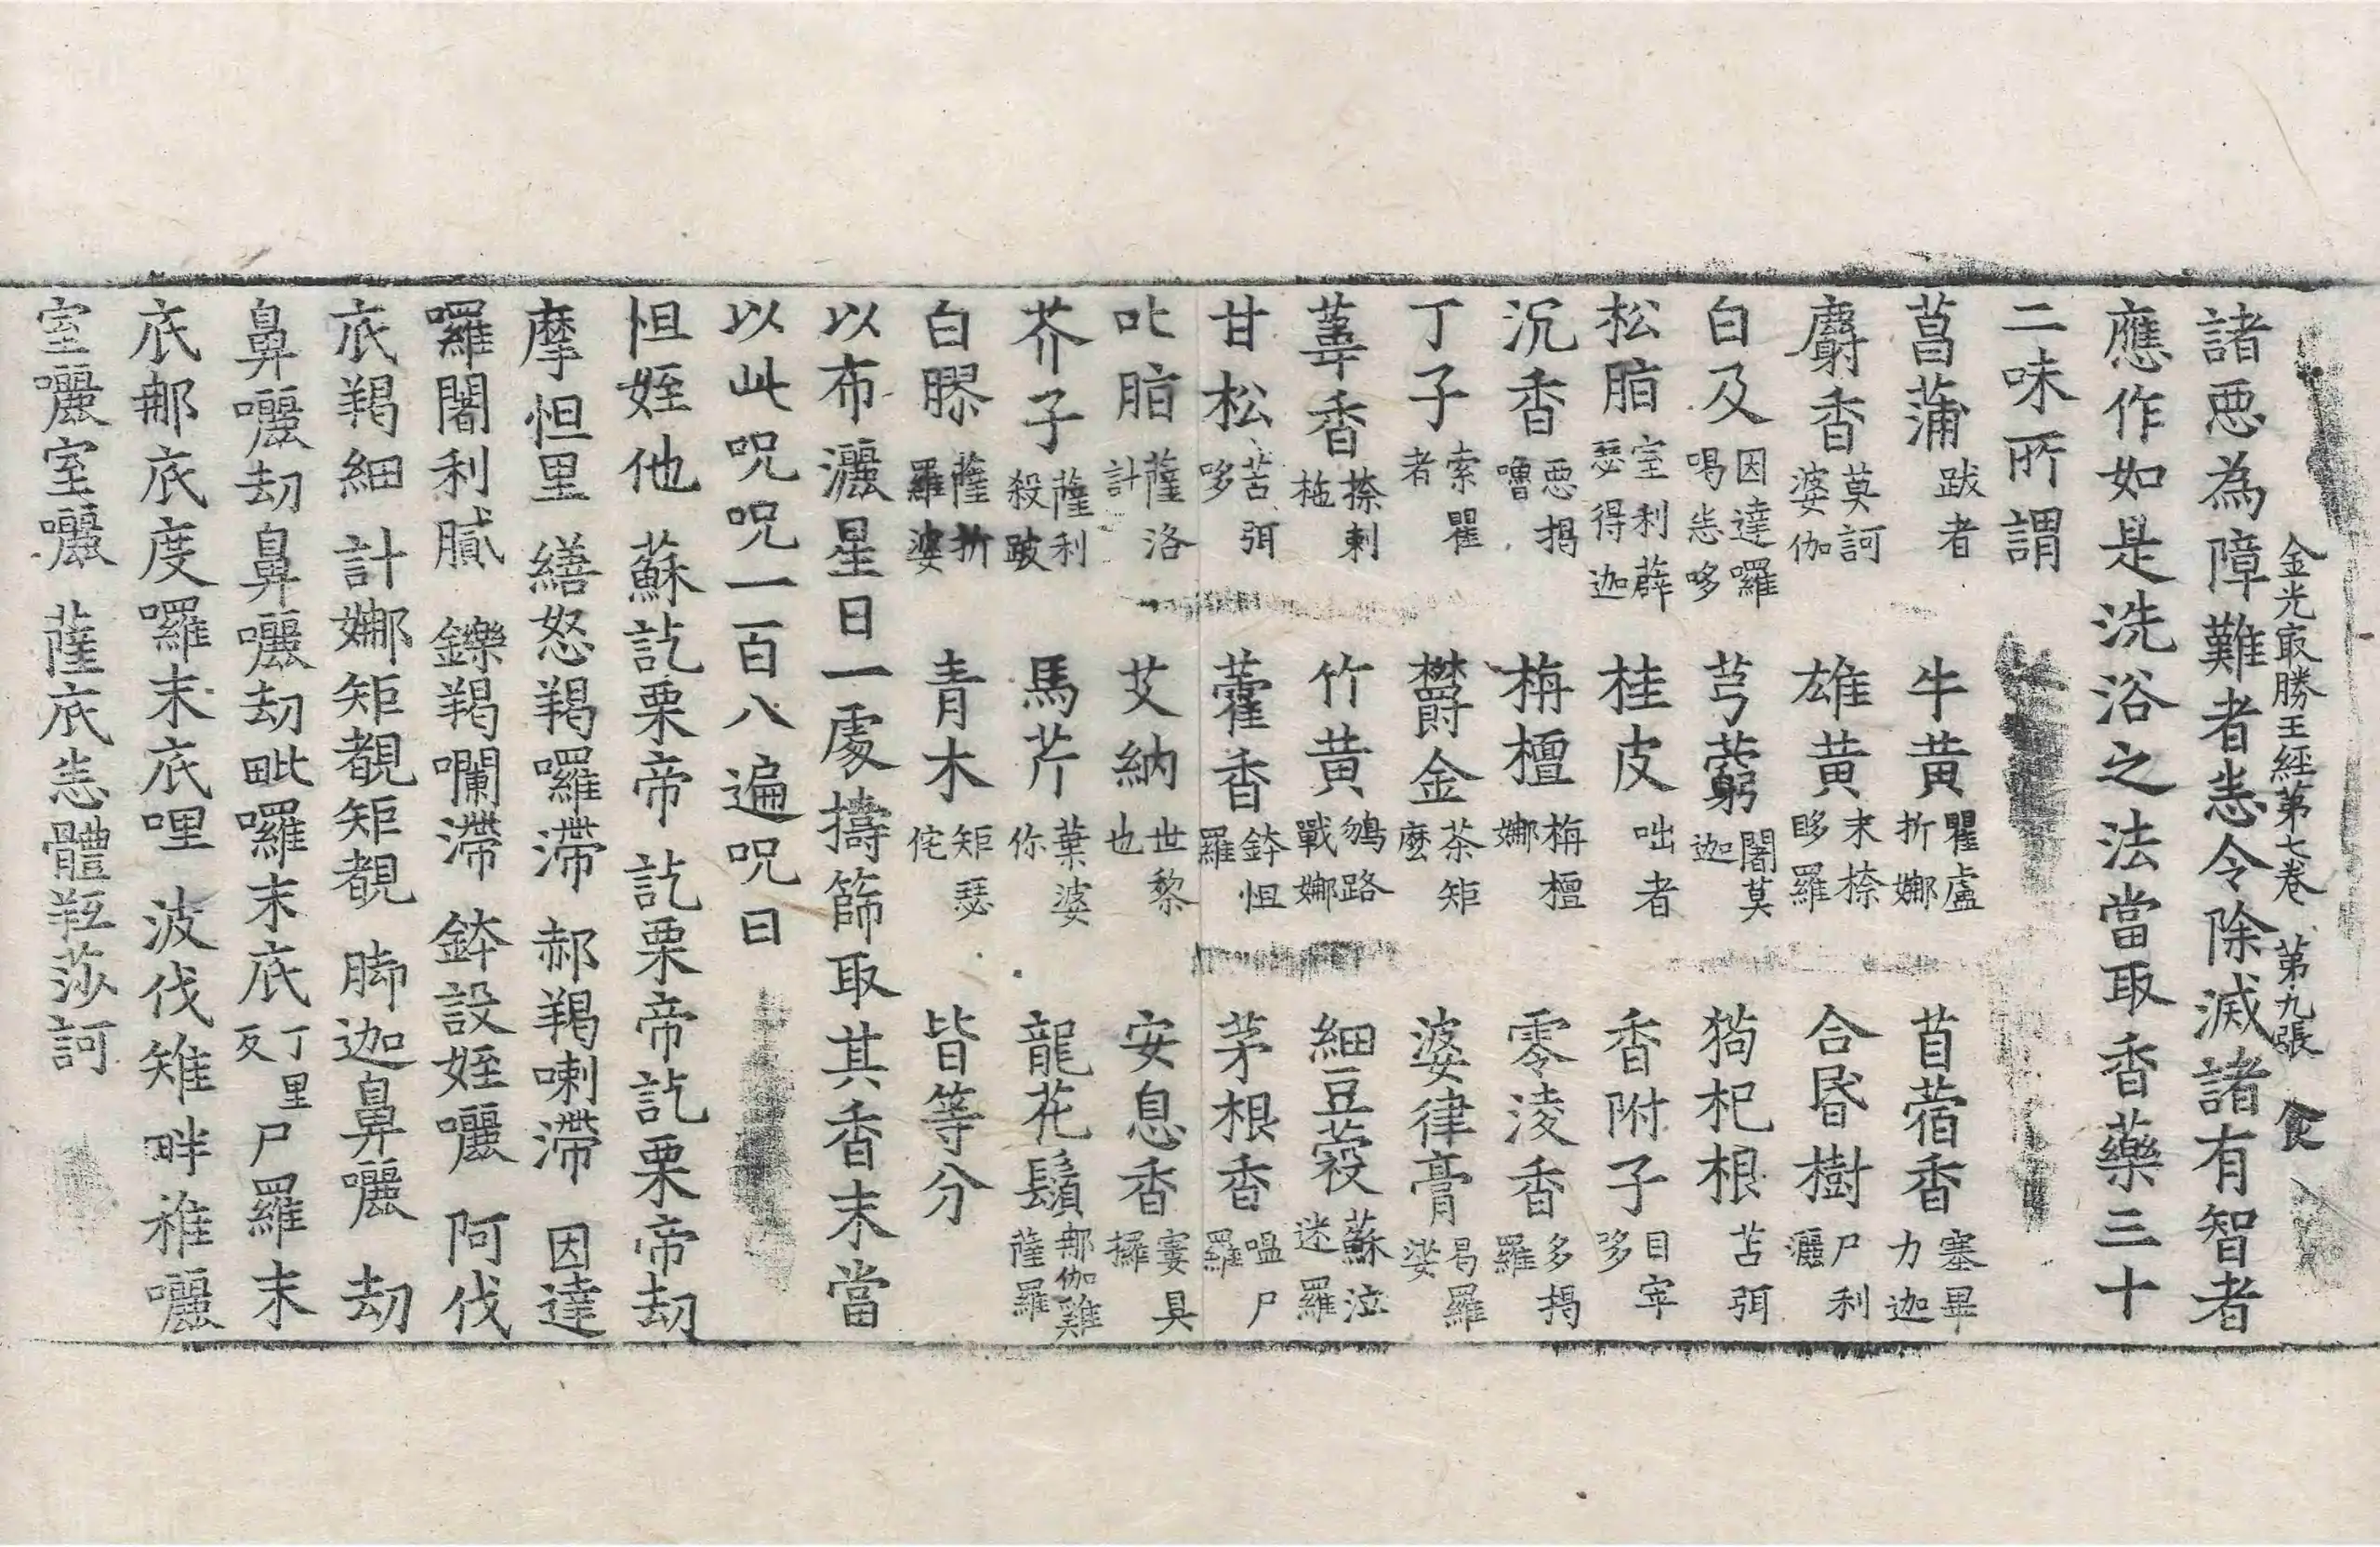 金光㝡勝王經第七卷 第九張 食
諸惡為障難者悉令除滅諸有智者
應作如是洗浴之法當取香藥三十
二味所謂
菖蒲跋者 牛黃瞿盧折娜 苜蓿香塞畢力迦
麝香莫訶婆伽 雄黃末㮈眵羅 合昏樹尸利灑
白及因達囉喝悉哆 芎藭闍莫迦 狗杞根苫弭
松脂室利薜瑟得迦 桂皮咄者 香附子目窣哆
沉香惡揭嚕 栴檀栴檀娜 零淩香多揭羅
丁子索瞿者 欝金茶矩麼 婆律膏曷羅娑
葦香㮈刺柂 竹黃鶬路戰娜 細豆蔻蘇泣迷羅
甘松苫弭哆 藿香鉢怛羅 茅根香嗢尸羅
叱脂薩洛計 艾納世黎也 安息香窶具攞
芥子薩利殺跛 馬芹葉婆你 龍花鬚那伽雞薩羅
白膠薩折羅婆 青木矩瑟侘 皆等分
以布灑星日一處擣篩取其香末當
以此呪呪一百八遍呪曰
怛姪他 蘇訖栗帝 訖栗帝訖栗帝劫
摩怛里 繕怒羯囉滯 郝羯喇滯 因達
囉闍利膩 鑠羯㘓滯 鉢設姪囇 阿伐
底羯細 計娜矩覩矩覩 脚迦鼻囇 劫
鼻囇劫鼻囇劫毗囉末底丁里反尸羅末
底那底度囉末底哩 波伐雉畔稚囇
室囇室囇 薩底悉體羝莎訶